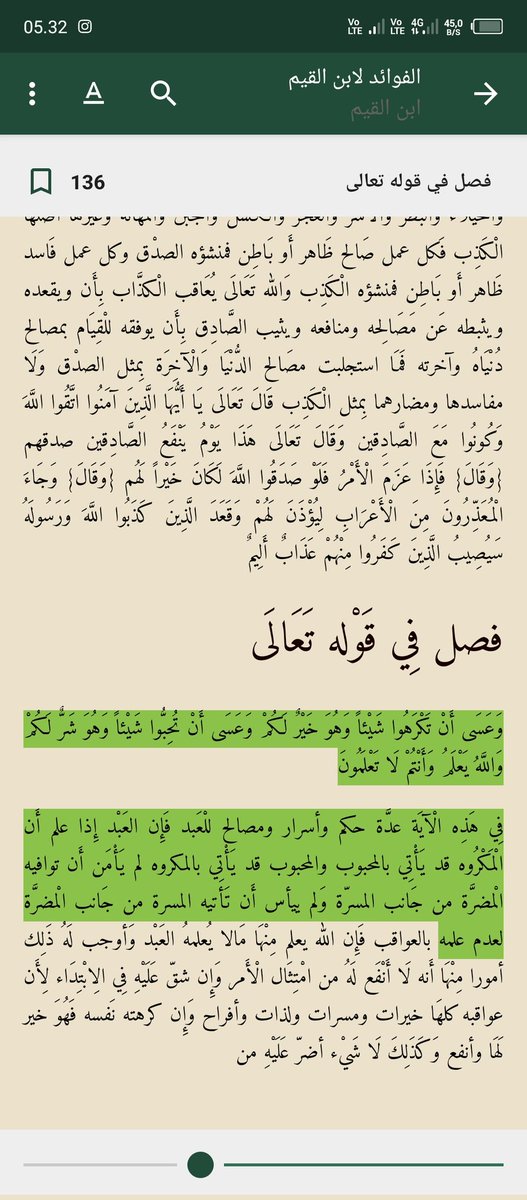 05.32
Vo LTE Vo LTE 4G 45,0 B/S
الفوائد لابن القيم
ابن القيم
A
فصل في قوله تعالى
136
الْكَذِب فَكل عمل صَالح ظَاهر أَو بَاطِن فمنشؤه الصدْق وكل عمل فَاسد
ظَاهر أَو بَاطِن فمنشؤه الْكَذِب وَالله تَعَالَى يُعَاقب الْكذَّاب بِأَن ويقعده
ويثبطه عَن مَصَالِحه ومنافعه ويثيب الصَّادِق بِأَن يوفقه للْقِيَام بمصالح
دُنْيَاهُ وآخرته فَمَا استجلبت مصَالح الدُّنْيَا وَالْآخِرَة بِمثل الصدْق وَلَا
مفاسدها ومضارهما بِمثل الْكَذِب قَالَ تَعَالَى يَا أَيُّهَا الَّذِينَ آمَنُوا اتَّقُوا اللَّهَ
وَكُونُوا مَعَ الصَّادِقِين وَقَالَ تَعَالَى هَذَا يَوْمُ يَنْفَعُ الصَّادِقِين صدقهم
{وَقَالَ} فَإِذَا عَزَمَ الْأَمْرُ فَلَوْ صَدَقُوا اللَّهَ لَكَانَ خَيْراً لَهُم {وَقَالَ} وَجَاءَ
الْمُعَذِّرُونَ مِنَ الْأَعْرَابِ لِيُؤْذَنَ لَهُمْ وَقَعَدَ الَّذِينَ كَذَبُوا اللَّهَ وَرَسُولَهُ
سَيُصِيبُ الَّذِينَ كَفَرُوا مِنْهُمْ عَذَابٌ أَلِيمٌ
فصل فِي قَوْله تَعَالَى
وَعَسَى أَنْ تَكْرَهُوا شَيْئاً وَهُوَ خَيْرٌ لَكُمْ وَعَسَى أَنْ تُحِبُّوا شَيْئاً وَهُوَ شَرٌّ لَكُمْ
وَاللَّهُ يَعْلَمُ وَأَنْتُمْ لَا تَعْلَمُونَ
فِي هَذِه الْآيَة عدَّة حكم وأسرار ومصالح للْعَبد فَإِن العَبْد إِذا علم أَن
الْمَكْرُوه قد يَأْتِي بالمحبوب والمحبوب قد يَأْتِي بالمكروه لم يَأْمَن أَن توافيه
الْمضرَّة من جَانب المسرّة وَلم ييأس أَن تَأتيه المسرة من جَانب الْمضرَّة
لعدم علمه بالعواقب فَإِن الله يعلم مِنْهَا مَالا يُعلمهُ العَبْد وَأوجب لَهُ ذَلِك
أمورا مِنْهَا أَنه لَا أَنْفَع لَهُ من امْتِثَال الْأَمر وَإِن شقّ عَلَيْهِ فِي الِابْتِدَاء لِأَن
عواقبه كلهَا خيرات ومسرات ولذات وأفراح وَإِن كرهته نَفسه فَهُوَ خير
لَهَا وأنفع وَكَذَلِكَ لَا شَيْء أضرّ عَلَيْهِ من